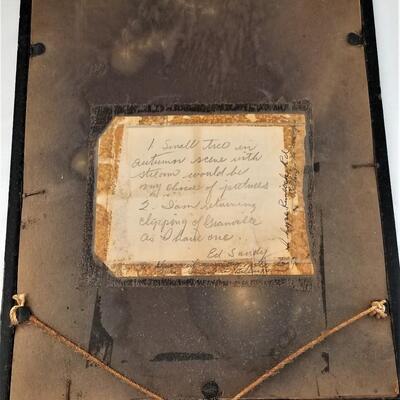 1 Small Tree in
autumn scene with
stream would be
my choice of pictures
2. I am returning
clipping of Granville
as I have one.
Ed Sandy